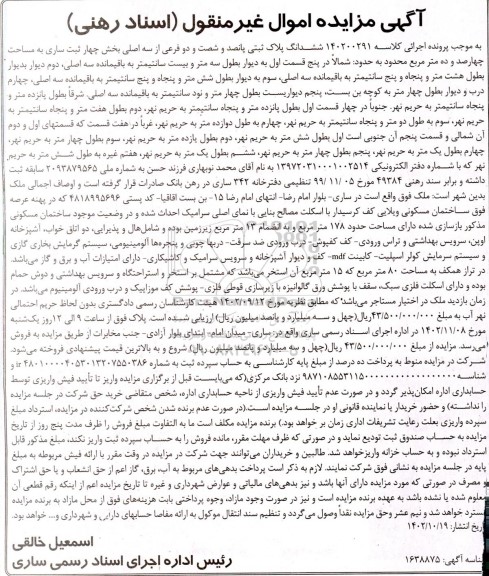 آگهی مزایده اموال غیرمنقول (اسناد رهنی)
به موجب پرونده اجرائی کلاسه ۱۴۰۲۰۰۲۹۱ ششدانگ پلاک ثبتی پانصد و شصت و دو فرعی از سه اصلی بخش چهار ثبت ساری به مساحت
چهارصد و ده متر مربع محدود به حدود: شمالاً در پنج قسمت اول به دیوار بطول سه متر و بیست سانتیمتر به باقیمانده سه اصلی، دوم دیوار بدیوار
بطول هشت متر و پنجاه و پنج سانتیمتر به باقیمانده سه اصلی، سوم به دیوار بطول شش متر و پنجاه و پنج سانتیمتر به باقیمانده سه اصلی، چهارم
درب و دیوار بطول چهار متر به کوچه بن بست، پنجم دیواریست بطول چهار متر و نود سانتیمتر به باقیمانده سه اصلی. شرقاً بطول پانزده متر و
پنجاه سانتیمتر به حریم نهر. جنوباً در چهار قسمت اول بطول پانزده متر و پنجاه سانتیمتر به حریم نهر، دوم بطول هفت متر و پنجاه سانتیمتر به
حریم نهر، سوم به طول دو متر و پنجاه سانتیمتر به حریم نهر، چهارم به طول دوازده متر به حریم نهر، غرباً در هفت قسمت که قسمتهای اول و دوم
آن شمالی و قسمت پنجم آن جنوبی است اول بطول شش متر به حریم نهر، دوم بطول یازده متر به حریم نهر، سوم بطول چهار متر به حریم نهر،
چهارم بطول یک متر به حریم نهر، پنجم بطول چهار متر به حریم نهر، ششم بطول یک متر به حریم نهر، هفتم غیره به طول شش متر به حریم
نهر که با شماره دفتر الکترونیکی ۱۳۹۷۲۰۳۱۰۰۰۱۰۰۲۵۱۴ به نام آقای محمد نوبهاری فرزند حسن به شماره ملی ۲۰۹۳۸۷۹۵۶۵ سابقه ثبت
داشته و برابر سند رهنی ۴۹۳۸۴ مورخ ۹۹/۱۱/۰۵ تنظیمی دفترخانه ۳۴۲ ساری در رهن بانک صادرات قرار گرفته است و اوصاف اجمالی ملک
بدین شهر است: ملک فوق واقع است در ساری- بلوار امام رضا- انتهای امام رضا ۱۵- بن بست اقاقیا- کد پستی ۴۸۱۸۹۹۵۶۹۶ که در پهنه عرصه
فوق ساختمان مسکونی ویلایی کف کرسیدار با اسکلت مصالح بنایی با نمای اصلی سرامیک احداث شده و در وضعیت موجود ساختمان مسکونی
مذکور بازسازی شده دارای مساحت حدود ۱۷۸ مترمربع و به انضمام ۱۳ متر مربع زیرزمین بوده و شامل‌هال و پذیرایی، دو اتاق خواب، آشپزخانه
اوپن، سرویس بهداشتی و تراس ورودی- کف کفپوش- درب ورود ضد سرقت- دربها چوبی و پنجره‌ها آلومینیومی، سیستم گرمایش بخاری گازی
و سیستم سرمایش کولر اسپلیت- کابینت mdf- کف و دیوار آشپزخانه و سرویس سرامیک و کاشیکاری- دارای امتیازات آب و برق و گاز می‌باشد.
در تراز همکف به مساحت ۸۰ متر مربع که ۱۵ مترمربع آن استخر می‌باشد که مشتمل بر استخر و استراحتگاه و سرویس بهداشتی و دوش حمام
بوده و دارای اسکلت فلزی سبک، سقف با پوشش ورق گالوانیزه با زیرسازی قوطی فلزی- پوشش کف موزاییک و درب ورودی آلومینیوم می‌باشد. در
زمان بازدید ملک در اختیار مستاجر می‌باشد؛ که مطابق نظریه مورخ ۱۴۰۲/۰۹/۱۲ هیئت کارشناسان رسمی دادگستری بدون لحاظ حریم احتمالی
نهر آب به مبلغ ۴۳/۵۰۰/۰۰۰/۰۰۰ ریال(چهل و سه میلیارد و پانصد میلیون ریال) ارزیابی شده است. پلاک فوق از ساعت ۹ الی ۱۲روز یک‌شنبه
مورخ ۱۴۰۲/۱۱/۰۸ در اداره اجرای اسناد رسمی ساری واقع در ساری- میدان امام- ابتدای بلوار آزادی- جنب مخابرات از طریق مزایده به فروش
می‌رسد. مزایده از مبلغ ۴۳/۵۰۰/۰۰۰/۰۰۰ ریال(چهل و سه میلیارد و پانصد میلیون ریال) شروع و به بالاترین قیمت پیشنهادی فروخته می‌شود.
شرکت در مزایده منوط به پرداخت ده درصد از مبلغ پایه کارشناسی به حساب سپرده ثبت به شماره ir۴۸۰۱۰۰۰۰۴۰۵۳۰۱۳۲۰۷۵۵۰۳۸۶ و
شناسه ۹۸۷۱۰۸۵۵۳۱۱۵ نزد بانک مرکزی(که می‌بایست قبل از برگزاری مزایده واریز تا تأیید فیش واریزی توسط
حسابداری اداره امکان‌پذیر گردد و در صورت عدم تأیید فیش واریزی از ناحیه حسابداری اداره، شخص متقاضی خرید حق شرکت در جلسه مزایده
را نداشته) و حضور خریدار یا نماینده قانونی او در جلسه مزایده است.(در صورت عدم برنده شدن شخص شرکت‌کننده در مزایده، استرداد مبلغ
سپرده واریزی بعلت رعایت تشریفات اداری زمان بر خواهد بود.) برنده مزایده مکلف است ما به التفاوت مبلغ فروش را ظرف مدت پنج روز از تاریخ
مزایده به حساب صندوق ثبت تودیع نماید و در صورتی که ظرف مهلت مقرر، مانده فروش را به حساب سپرده ثبت واریز نکند، مبلغ مذکور قابل
استرداد نبوده و به حساب خزانه واریزخواهد شد. طالبین و خریداران می‌توانند جهت شرکت در مزایده در وقت مقرر با ارائه فیش مربوطه به مبلغ
پایه در جلسه مزایده به نشانی فوق شرکت نمایند. لازم به ذکر است پرداخت بدهی‌های مربوط به آب، برق، گاز اعم از حق انشعاب و یا حق اشتراک
و مصرف در صورتی که مورد مزایده دارای آنها باشد و نیز بدهی‌های مالیاتی و عوارض شهرداری و غیره تا تاریخ مزایده اعم از اینکه رقم قطعی آن
معلوم شده یا نشده باشد به عهده برنده مزایده است و نیز در صورت وجود مازاد، وجوه پرداختی بابت هزینه‌های فوق از محل مازاد به برنده مزایده
مسترد خواهد شد و نیم عشر وحق مزایده نقداً وصول می‌گردد و تنظیم سند انتقال موکول به ارائه مفاصا حسابهای دارایی و شهرداری و... خواهد بود.
تاریخ انتشار: ۱۴۰۲/۱۰/۱۹
اسمعیل خالقی
رئیس اداره اجرای اسناد رسمی ساری
شناسه آگهی: ۱۶۳۸۸۷۵